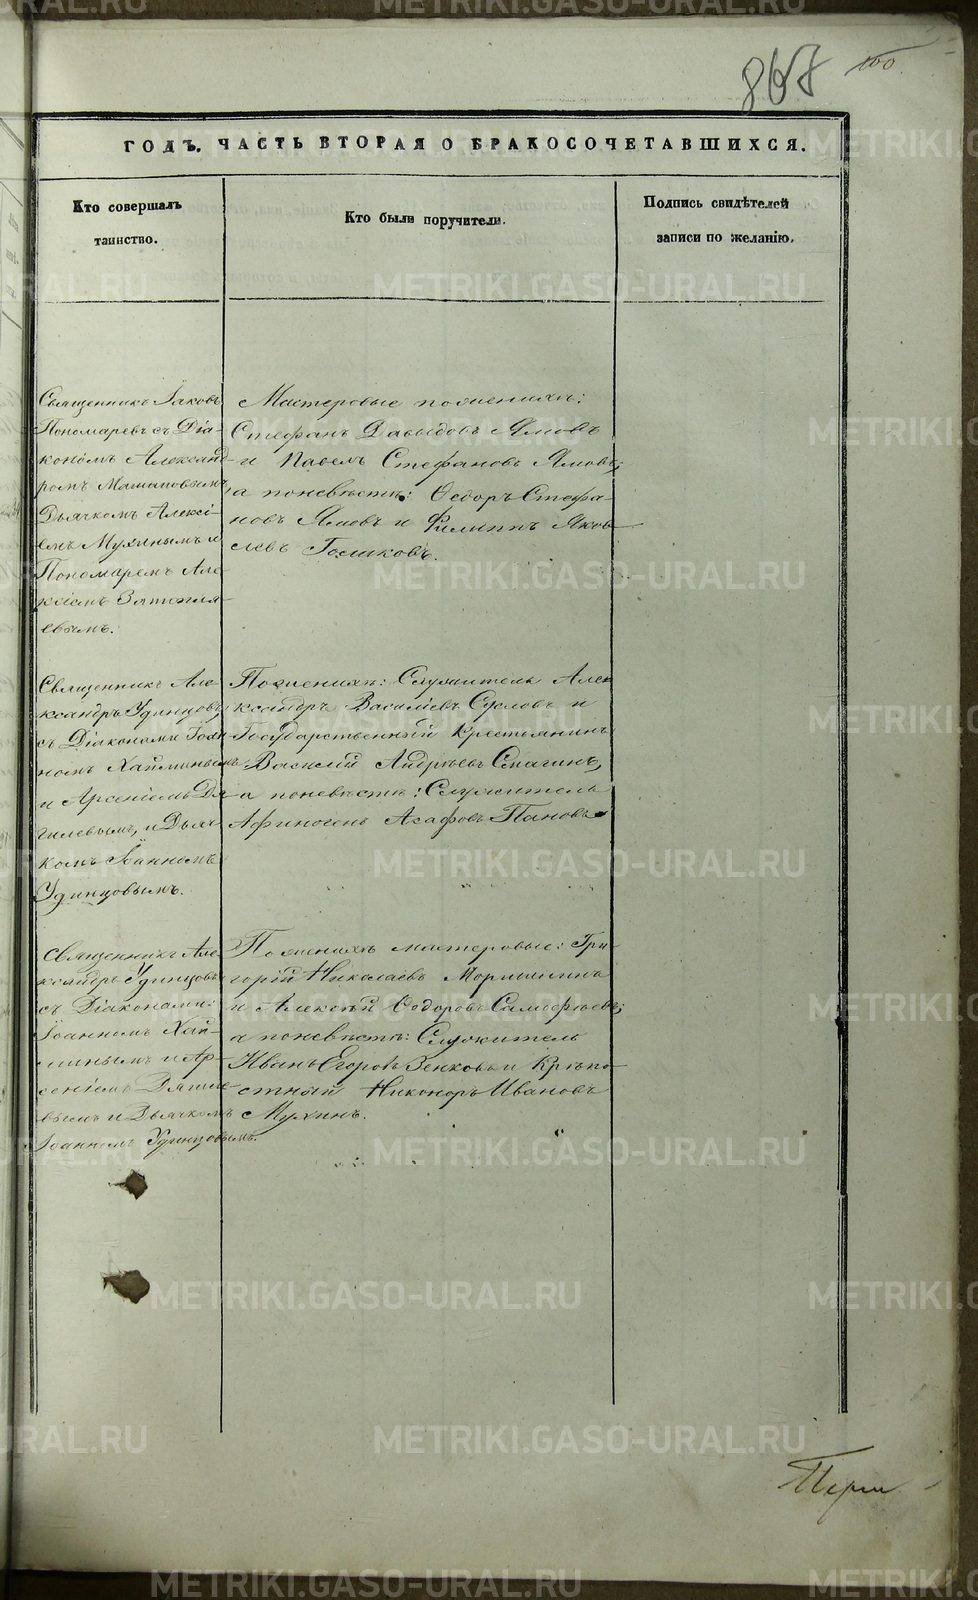 867 160
ГОДЪ. ЧАСТЬ ВТОРАЯ О БРАКОСОЧЕТАВШИХСЯ.
Кто совершалъ
таинство.
Кто были поручители.
Подпись свидѣтелей
записи по желанію.
Священникъ Іаковъ
Пономаревъ съ Діа-
кономъ Александ-
ромъ
Дьячкомъ Алексі-
емъ Мухинымъ и
Пономаремъ Але-
ксіемъ
евымъ.
Мастеровые поженихѣ:
Стефанъ Давыдовъ Ямовъ
и Павелъ Стефановъ Ямовъ;
а поневѣстѣ: Ѳедоръ Стефа-
новъ Ямовъ и Филиппъ Яков-
левъ Голиковъ.
Священникъ Але-
ксандръ Удинцовъ
съ Діаконами Іоан-
номъ Хайминымъ
и Арсеніемъ Дя-
гилевымъ, и Дьяч-
комъ Іоанномъ
Удинцовымъ.
Поженихѣ: Служитель Алек
ксандръ Василіевъ Сусловъ и
Государственный Крестьянинъ
Василій Андреевъ Спагинъ,
а поневѣстѣ: Служитель
Афиногенъ Агафовъ Пановъ.
Священникъ Але-
ксандръ Удинцовъ
съ Діаконами:
Іоанномъ Хай-
минымъ и Ар-
сеніемъ Дягиле-
вымъ и Дьячкомъ
Іоанномъ Удинцовымъ.
Поженихѣ мастеровые: Гри-
горій Николаевъ
и Алексѣй Ѳодоровъ
а поневѣстѣ: Служитель
Иванъ Егоровъ Зенковъ и Крѣпо-
стный Никоноръ Ивановъ
Мухинъ.
METRIKI.GASO-URAL.RU